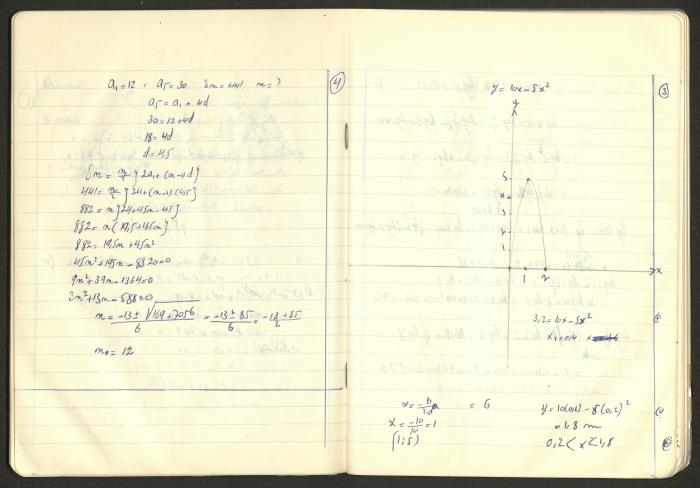 ④
a₁=12 , a₅=30 Sm=441 m=?
a₅=a₁+4d
30=12+4d
18=4d
d=4,5
Sm = m/2 } 2a₁+(m-1)d }
441= m/2 } 24+(m-1)4,5 }
882= m } 24+4,5m-4,5 }
882= m ( 19,5+4,5m }
882= 19,5m+4,5m²
45m²+195m-8820=0
3m²+13m-588=0
m= -13±√169+7056 / 6 = -13±85 / 6 = -13+85
m₁= 12
③
y=10x-5x²
y
5
4
3
2
1
1 2
x
3,2=10x-5x²
x=-b/2a = 6
y=10(0,2)-5(0,2)²
x=-10/-10=1
=1,8 m
(1;5)
0,2<x<1,8